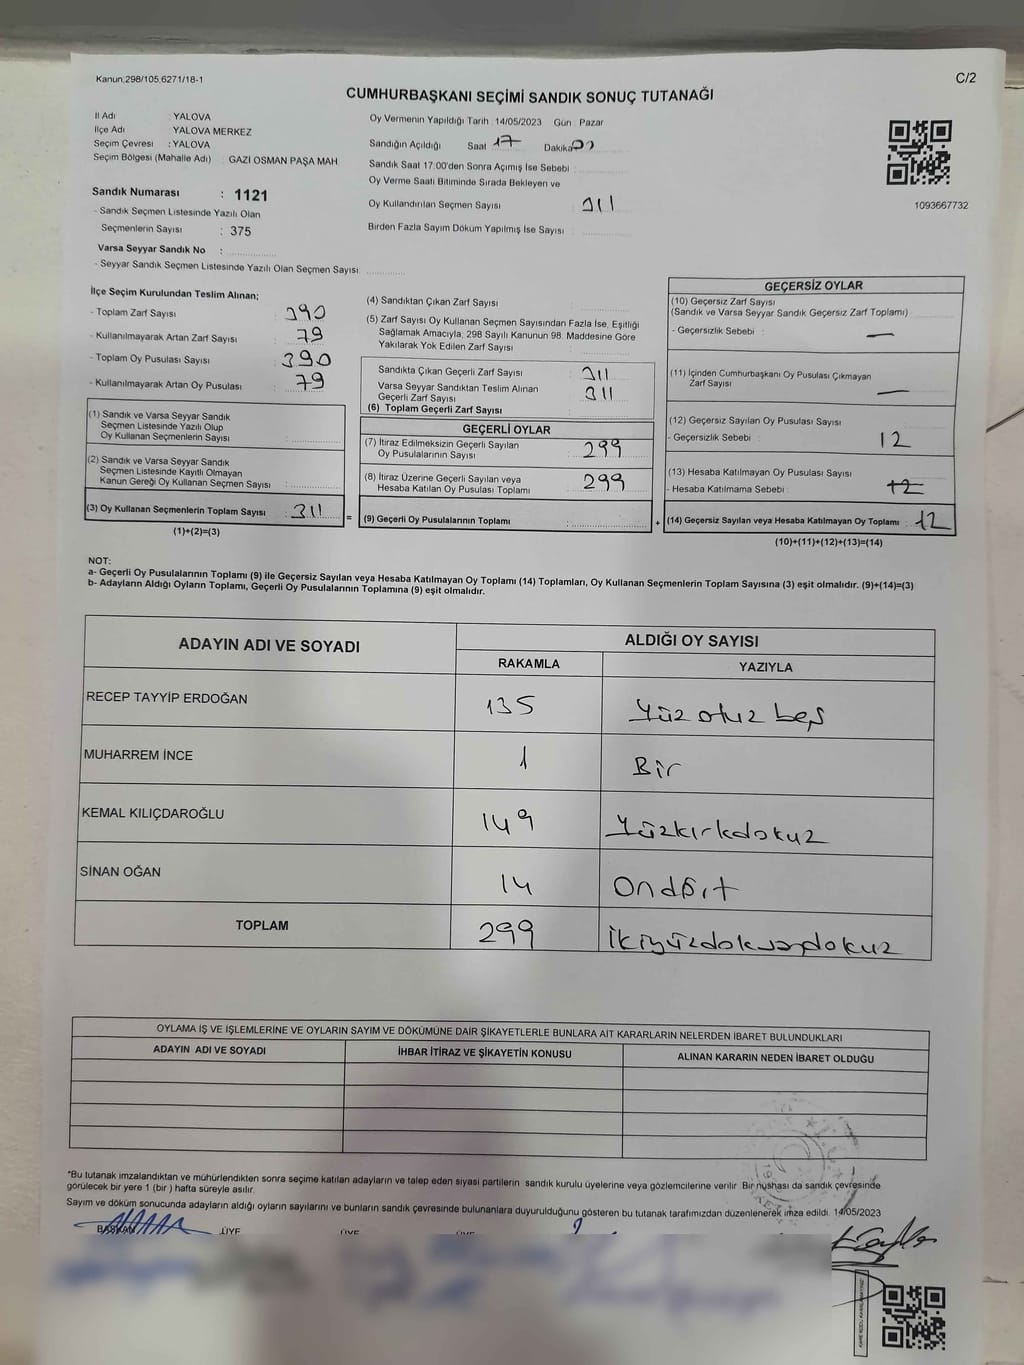 Kanun;298/105,6271/18-1
C/2
CUMHURBAŞKANI SEÇİMİ SANDIK SONUÇ TUTANAĞI
İl Adı : YALOVA
İlçe Adı YALOVA MERKEZ
Seçim Çevresi : YALOVA
Seçim Bölgesi (Mahalle Adı) : GAZİ OSMAN PAŞA MAH
Sandık Numarası : 1121
- Sandık Seçmen Listesinde Yazılı Olan
Seçmenlerin Sayısı : 375
Varsa Seyyar Sandık No :
- Seyyar Sandık Seçmen Listesinde Yazılı Olan Seçmen Sayısı:
Oy Vermenin Yapıldığı Tarih : 14/05/2023 Gün : Pazar
Sandığın Açıldığı Saat 17 Dakika
Sandık Saat 17:00'den Sonra Açımış İse Sebebi :
Oy Verme Saati Bitiminde Sırada Bekleyen ve
Oy Kullandırılan Seçmen Sayısı : 311
Birden Fazla Sayım Döküm Yapılmış İse Sayısı :
1093667732
İlçe Seçim Kurulundan Teslim Alınan;
- Toplam Zarf Sayısı : 390
- Kullanılmayarak Artan Zarf Sayısı : 79
- Toplam Oy Pusulası Sayısı : 390
- Kullanılmayarak Artan Oy Pusulası : 79
(1) Sandık ve Varsa Seyyar Sandık
Seçmen Listesinde Yazılı Olup
Oy Kullanan Seçmenlerin Sayısı :
(2) Sandık ve Varsa Seyyar Sandık
Seçmen Listesinde Kayıtlı Olmayan
Kanun Gereği Oy Kullanan Seçmen Sayısı :
(3) Oy Kullanan Seçmenlerin Toplam Sayısı : 311 =
(1)+(2)=(3)
(4) Sandıktan Çıkan Zarf Sayısı :
(5) Zarf Sayısı Oy Kullanan Seçmen Sayısından Fazla İse, Eşitliği
Sağlamak Amacıyla; 298 Sayılı Kanunun 98. Maddesine Göre
Yakılarak Yok Edilen Zarf Sayısı :
Sandıkta Çıkan Geçerli Zarf Sayısı : 311
Varsa Seyyar Sandıktan Teslim Alınan
Geçerli Zarf Sayısı : 311
(6) Toplam Geçerli Zarf Sayısı :
GEÇERLİ OYLAR
(7) İtiraz Edilmeksizin Geçerli Sayılan
Oy Pusulalarının Sayısı : 299
(8) İtiraz Üzerine Geçerli Sayılan veya
Hesaba Katılan Oy Pusulası Toplamı : 299
(9) Geçerli Oy Pusulalarının Toplamı : +
GEÇERSİZ OYLAR
(10) Geçersiz Zarf Sayısı
(Sandık ve Varsa Seyyar Sandık Geçersiz Zarf Toplamı) :
- Geçersizlik Sebebi : —
(11) İçinden Cumhurbaşkanı Oy Pusulası Çıkmayan
Zarf Sayısı : —
(12) Geçersiz Sayılan Oy Pusulası Sayısı
- Geçersizlik Sebebi : 12
(13) Hesaba Katılmayan Oy Pusulası Sayısı
- Hesaba Katılmama Sebebi : 12
(14) Geçersiz Sayılan veya Hesaba Katılmayan Oy Toplamı : 12
(10)+(11)+(12)+(13)=(14)
NOT:
a- Geçerli Oy Pusulalarının Toplamı (9) ile Geçersiz Sayılan veya Hesaba Katılmayan Oy Toplamı (14) Toplamları, Oy Kullanan Seçmenlerin Toplam Sayısına (3) eşit olmalıdır. (9)+(14)=(3)
b- Adayların Aldığı Oyların Toplamı, Geçerli Oy Pusulalarının Toplamına (9) eşit olmalıdır.
ADAYIN ADI VE SOYADI ALDIĞI OY SAYISI
RAKAMLA YAZIYLA
RECEP TAYYİP ERDOĞAN 135 Yüz otuz beş
MUHARREM İNCE 1 Bir
KEMAL KILIÇDAROĞLU 149 Yüzkırkdokuz
SİNAN OĞAN 14 Ondört
TOPLAM 299 İkiyüzdoksandokuz
OYLAMA İŞ VE İŞLEMLERİNE VE OYLARIN SAYIM VE DÖKÜMÜNE DAİR ŞİKAYETLERLE BUNLARA AİT KARARLARIN NELERDEN İBARET BULUNDUKLARI
ADAYIN ADI VE SOYADI İHBAR İTİRAZ VE ŞİKAYETİN KONUSU ALINAN KARARIN NEDEN İBARET OLDUĞU
*Bu tutanak imzalandıktan ve mühürlendikten sonra seçime katılan adayların ve talep eden siyasi partilerin sandık kurulu üyelerine veya gözlemcilerine verilir. Bir nüshası da sandık çevresinde
görülecek bir yere 1 (bir ) hafta süreyle asılır.
Sayım ve döküm sonucunda adayların aldığı oyların sayılarını ve bunların sandık çevresinde bulunanlara duyurulduğunu gösteren bu tutanak tarafımızdan düzenlenerek imza edildi. 14/05/2023
BAŞKAN ÜYE ÜYE ÜYE